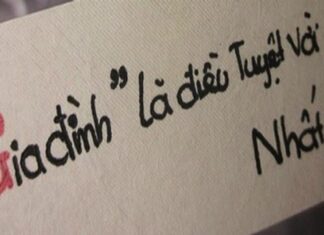 Gia đình" là điều Tuyệt Vời
Nhất